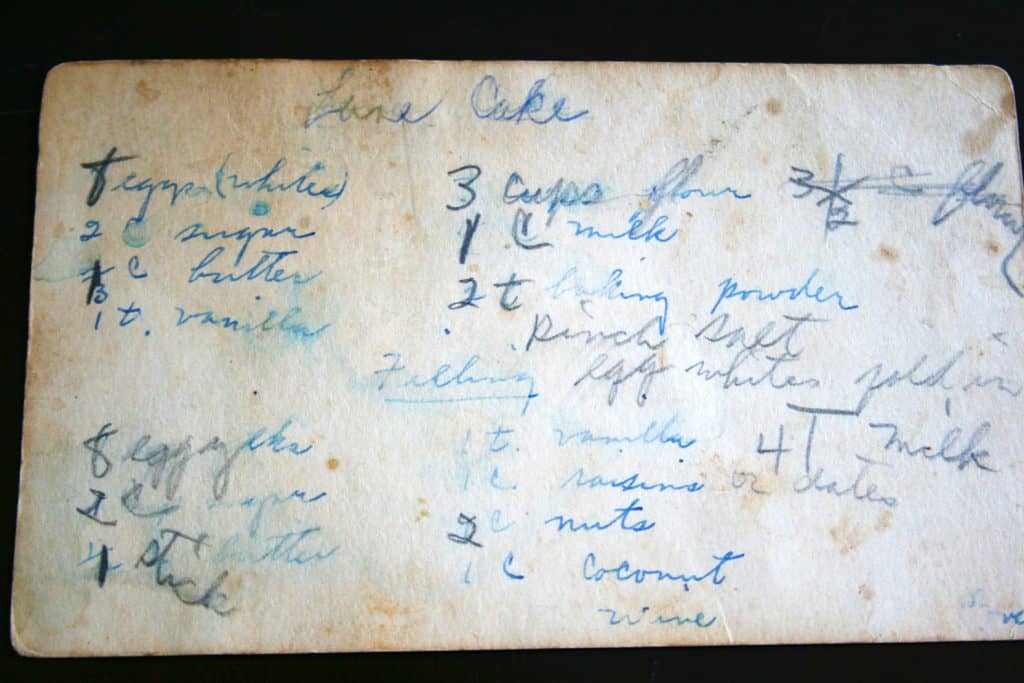 Lane Cake
8 eggs (whites)
2 C sugar
1 c butter
1 t. vanilla
3 cups flour 3 1/2 c flour
1 C milk
2 t baking powder
pinch salt
egg whites fold in
Filling
8 egg yolks
2 C sugar
1 stick butter
1 t. vanilla 4 T milk
1 c. raisins or dates
2 c nuts
1 c coconut
wine